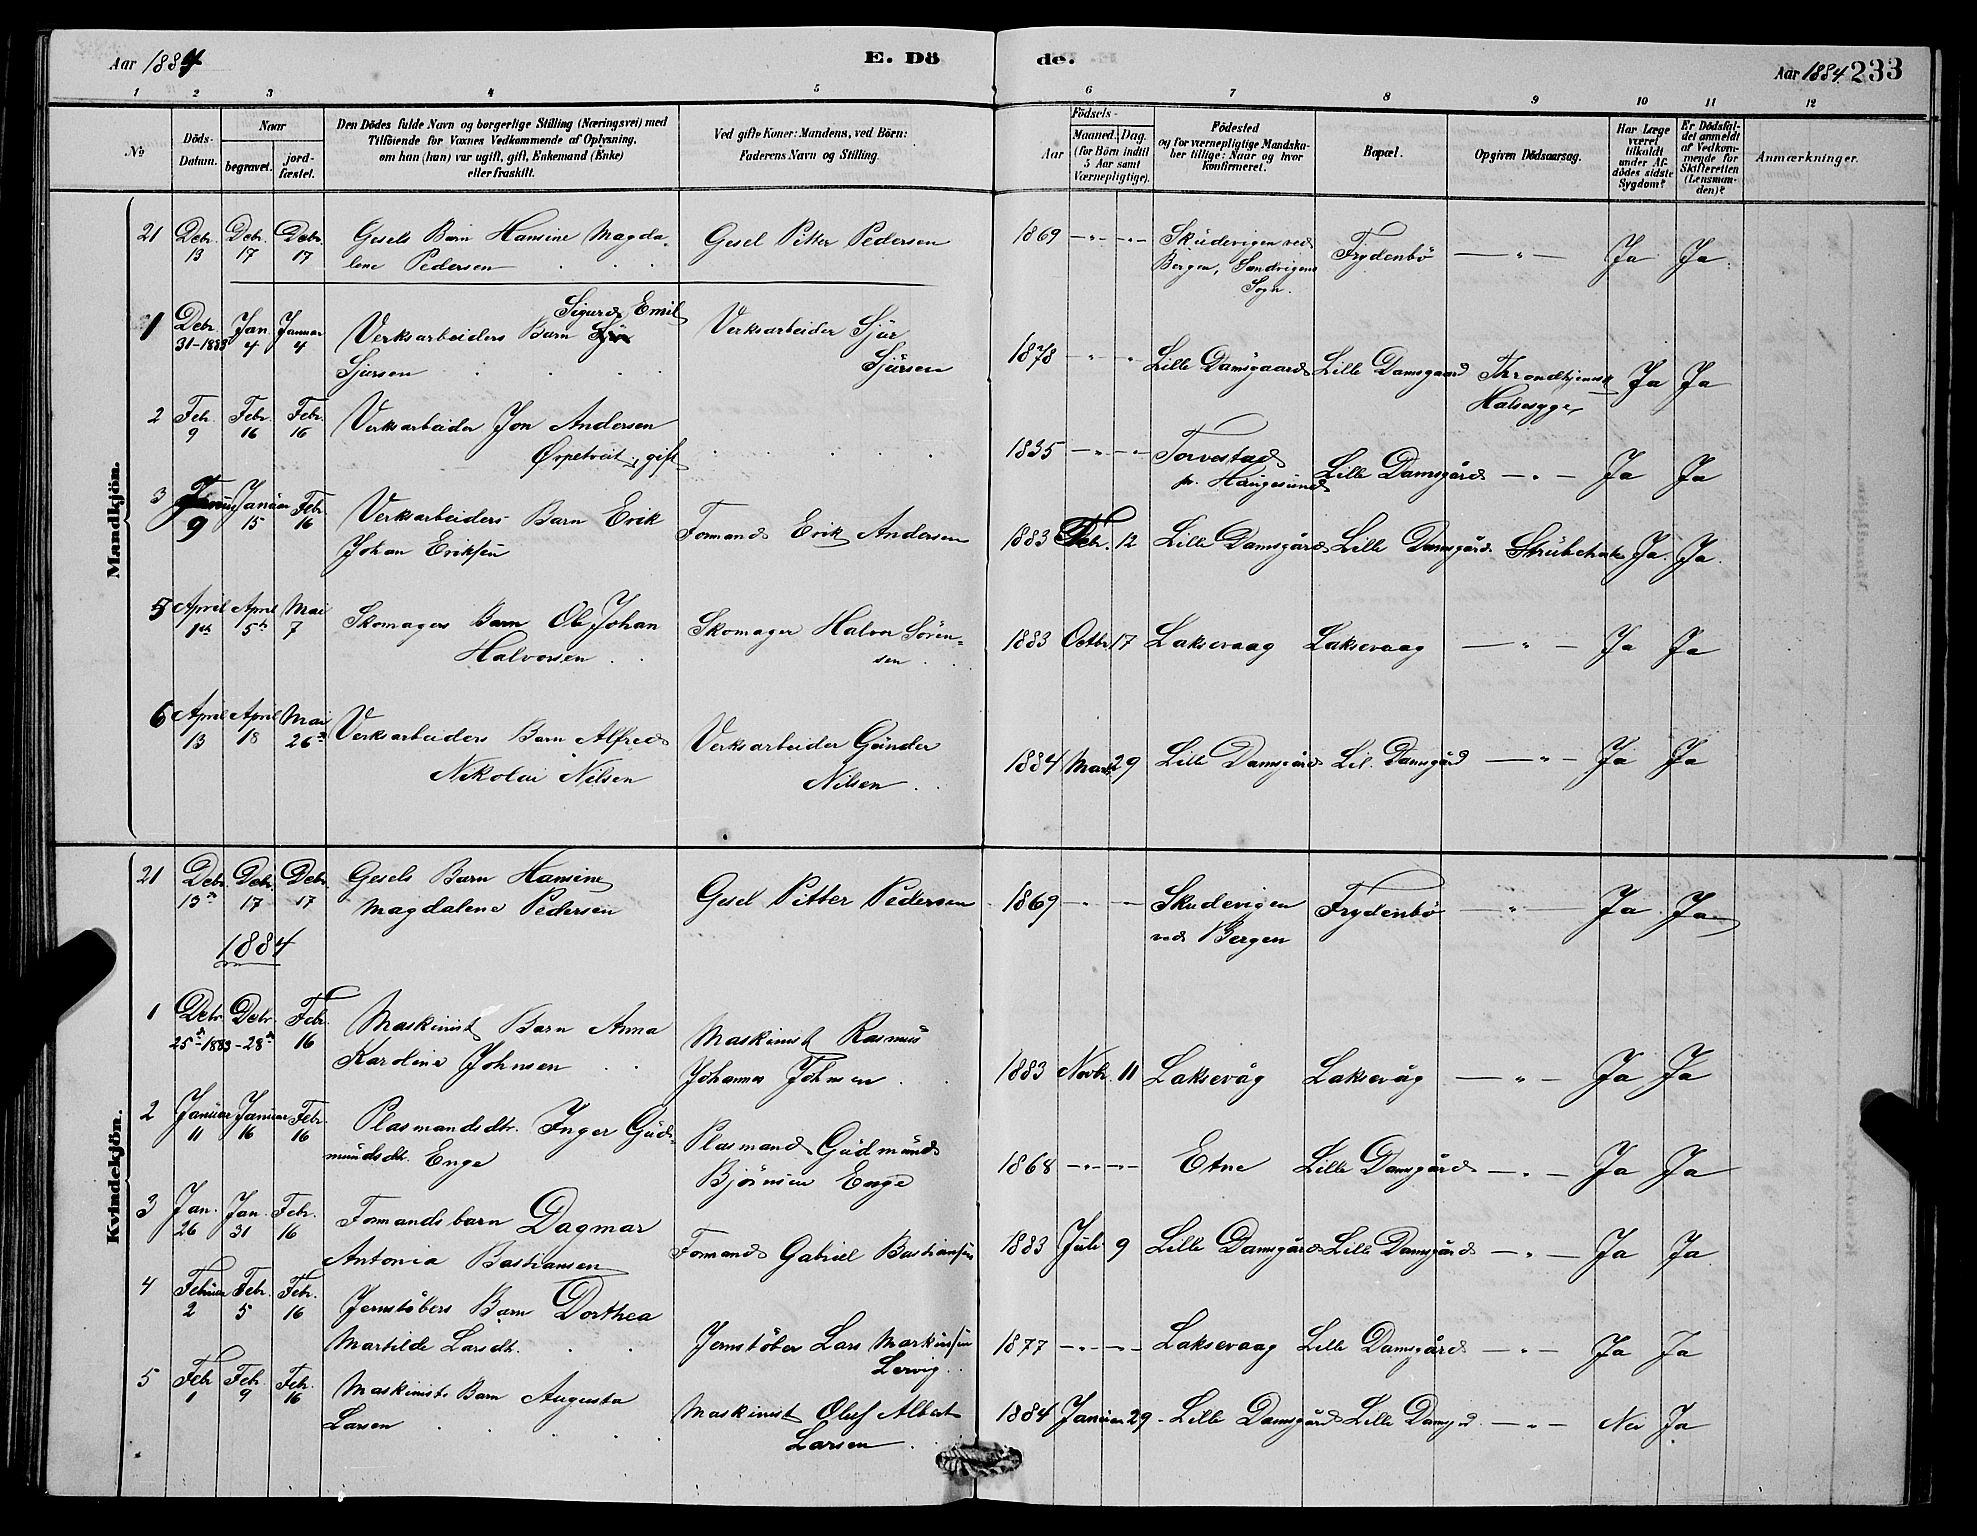 Aar 1884
E. Dö
de.
Aar 1884
233
1 2 3 4 5 6 7 8 9 10 11 12
No
Döds-Datum.
Naar
begravet.
jord-fæstet.
Den Dödes fulde Navn og borgerlige Stilling (Næringsvei) med
Tilföiende for Voxnes Vedkommende af Oplysning,
om han (hun) var ugift, gift, Enkemand (Enke)
eller fraskilt.
Ved gifte Koner: Mandens, ved Börn:
Faderens Navn og Stilling.
Födsels-
Aar
Maaned. Dag.
(for Börn indtil
5 Aar samt
Værnepligtige).
Födested
og for værnepligtige Mandska-
ber tillige: Naar og hvor
konfirmeret.
Bopæl.
Opgiven Dödsaarsag.
Har Læge
været
tilkaldt
under Af-
dödes sidste
Sygdom?
Er Dödsfal-
det anmeldt
af Vedkom-
mende for
Skifteretten
(Lensman-
den)?
Anmærkninger.
Mandkjön.
21 Debr. 13 Debr. 17 Debr. 17 Gesels Barn Hansine Magda-
lene Pedersen Gesel Pitter Pedersen 1869 -"- -"- Skudevigen ved
Bergen, Sandvigens
Sogn. Frydenbö -"- Ja Ja
1 Debr. 31-1883 Jan. 4 Januar 4 Verksarbeiders Barn Sigurd Emil
Sjursen Verksarbeider Sjur
Sjursen 1878 " " Lille Damsgaard Lille Damsgaard Throndhjemsk
Halsesyge Ja Ja
2 Febr. 9 Febr. 16 Febr. 16 Verksarbeider Jon Andersen
Ørpetveit, gift 1835 -"- -"- Torvestad
pr. Haugesund Lille Damsgård -"- Ja Ja
3 9 Januar 15 Febr. 16 Verksarbeiders Barn Erik
Johan Eriksen Formand Erik Andersen 1883 Febr. 12 Lille Damsgård Lille Damsgård Strubehoste Ja. Ja.
5 April 1ste April 5te Mai 7 Skomagers Barn Ole Johan
Halvorsen Skomager Halvor Sören-
sen 1883 Octbr. 17 Laksevaag Laksevaag -"- Ja Ja
6 April 13 April 18 Mai 26de Verksarbeiders Barn Alfred
Nikolai Nilsen Verksarbeider Gunder
Nilsen 1884 Marts 29 Lille Damsgård Lil. Damsgård -"- Ja Ja
Kvindekjön.
21 Debr. 13de Debr. 17 Debr. 17 Gesels Barn Hansine
Magdalene Pedersen Gesel Pitter Pedersen 1869 -"- Skudevigen
ved Bergen Frydenbö -"- Ja Ja
1884
1 Debr. 25de-1883 Debr. 28de Febr. 16 Maskinist Barn Anna
Karoline Johnsen Maskinist Rasmus
Johannes Johnsen 1883 Novbr. 11 Laksevåg Laksevåg -"- Ja Ja
2 Januar 11 Januar 16 Febr. 16 Plasmandsdtr. Inger Gud-
mundsdtr. Enge Plasmand Gudmund
Björnsen Enge 1868 -"- -"- Etne Lille Damsgård -"- Ja Ja
3 Jan. 26 Jan. 31 Febr. 16 Formandsbarn Dagmar
Antonia Bastiansen Formand Gabriel Bastiansen 1883 Juli 9 Lille Damsgård Lille Damsgård -"- Ja Ja
4 Februar 2 Febr. 5 Febr. 16 Jernstöbers Barn Dorthea
Martilde Larsdtr. Jernstöber Lars Markussen
Lervig 1877 -"- -"- Laksevaag Lille Damsgård -"- Ja Ja
5 Febr. 1 Febr. 9 Febr. 16 Maskinists Barn Augusta
Larsen Maskinist Oluf Albert
Larsen 1884 Januar 29 Lille Damsgård Lille Damsgd. -"- Nei Ja